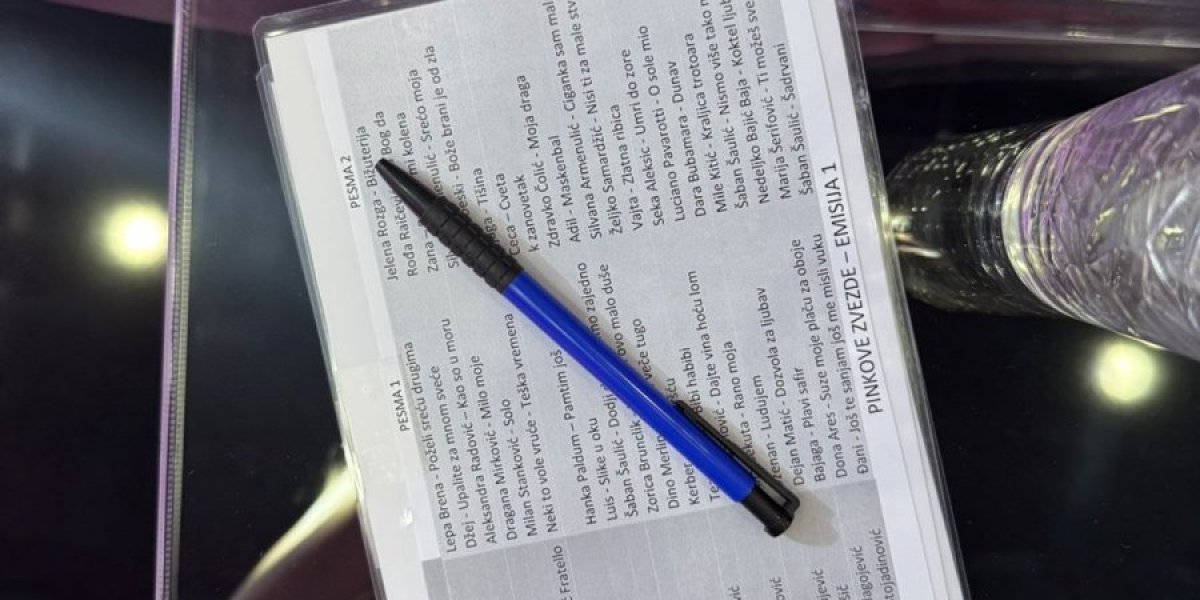 PESMA 1
Lepa Brena - Poželi sreću drugima
Džej - Upalite za mnom sveće
Aleksandra Radović – Kao so u moru
Dragana Mirković - Milo moje
Milan Stanković - Solo
Neki to vole vruće - Teška vremena
Hanka Paldum – Pamtim još
Luis - Slike u oku
Šaban Šaulić - Dodji zajedno
Zorica Brunclik - ovo malo duše
Dino Merlin veče tugo
Kerber
habibi
Dajte vina hoću lom
Rano moja
Ludujem
Dejan Matić - Dozvola za ljubav
Bajaga - Plavi safir
Dona Ares - Suze moje plaču za oboje
Đani - Još te sanjam još me misli vuku
PESMA 2
Jelena Rozga - Bižuterija
Bog da
mi kolena
Zana - Srećo moja
Bože brani je od zla
Tišina
Ceca – Cveta
k zanovetak
Zdravko Čolić - Moja draga
Adil - Maskenbal
Silvana Armenulić - Ciganka sam mal
Željko Samardžić - Nisi ti za male stv
Vajta - Zlatna ribica
Seka Aleksić - Umri do zore
Luciano Pavarotti - O sole mio
Dara Bubamara - Dunav
Mile Kitić - Kraljica trotoara
Šaban Šaulić - Nismo više tako
Nedeljko Bajić Baja - Koktel ljub
Marija Šerifović - Ti možeš sve
Šaban Šaulić - Šadrvani
Fratello
PINKOVE ZVEZDE – EMISIJA 1